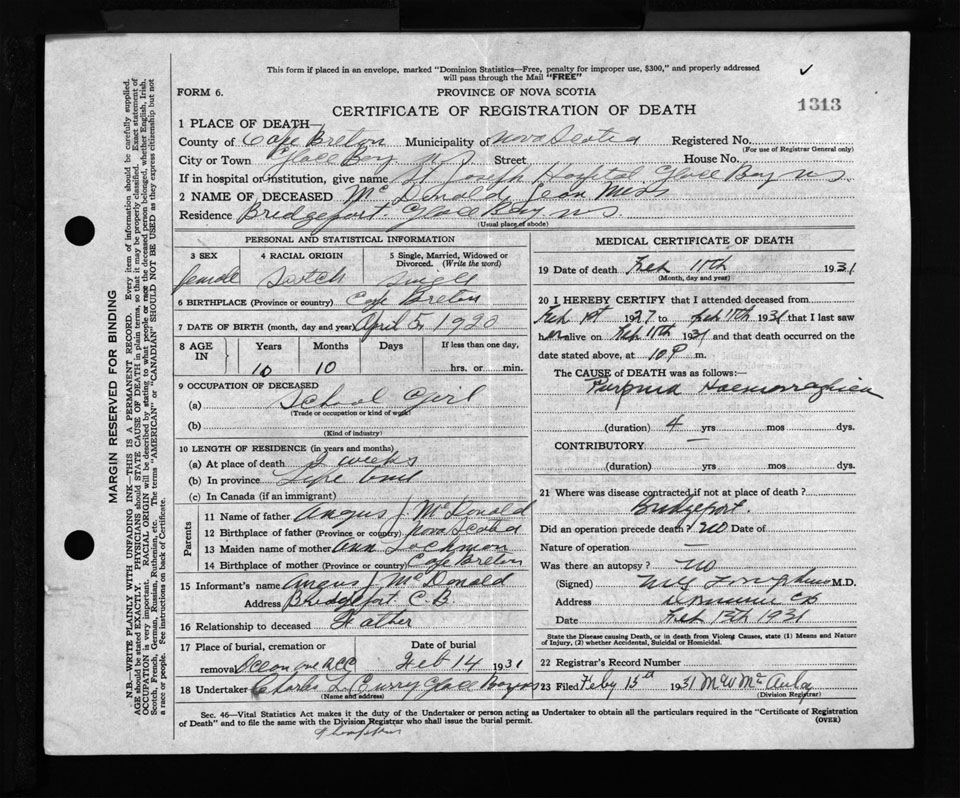 This form if placed in an envelope, marked "Dominion Statistics—Free, penalty for improper use, $300," and properly addressed
will pass through the Mail "FREE"
FORM 6.
PROVINCE OF NOVA SCOTIA
CERTIFICATE OF REGISTRATION OF DEATH
1313
1 PLACE OF DEATH—
County of Cape Breton Municipality of Nova Scotia Registered No.
(For use of Registrar General only)
City or Town Glace Bay N.S Street House No.
If in hospital or institution, give name St Joseph Hospital Glace Bay N.S.
2 NAME OF DECEASED Mc Donald, Jean Miss
Residence Bridgeport. Glace Bay N S
(Usual place of abode)
PERSONAL AND STATISTICAL INFORMATION
3 SEX 4 RACIAL ORIGIN 5 Single, Married, Widowed or Divorced. (Write the word)
female Scotch Single
6 BIRTHPLACE (Province or country) Cape Breton
7 DATE OF BIRTH (month, day and year) April 5, 1920
8 AGE IN Years Months Days If less than one day,
10 10 hrs. or min.
9 OCCUPATION OF DECEASED
(a) School Girl
(Trade or occupation or kind of work)
(b)
(Kind of industry)
10 LENGTH OF RESIDENCE (in years and months)
(a) At place of death 2 weeks
(b) In province Life time
(c) In Canada (if an immigrant)
Parents
11 Name of father Angus J. McDonald
12 Birthplace of father (Province or country) Nova Scotia
13 Maiden name of mother Ann
14 Birthplace of mother (Province or country) Cape Breton
15 Informant's name Angus J McDonald
Address Bridgeport C.B.
16 Relationship to deceased Father
17 Place of burial, cremation or removal Date of burial
Feb 14 1931
18 Undertaker Charles L Curry Glace Bay N.S
(Name and address)
MEDICAL CERTIFICATE OF DEATH
19 Date of death Feb 11th 1931
(Month, day and year)
20 I HEREBY CERTIFY that I attended deceased from
Feb 1st 1927 to Feb 11th 1931 that I last saw
her alive on Feb 11th 1931 and that death occurred on the
date stated above, at 10 P m.
The CAUSE of DEATH was as follows:—
Purpura Haemorraghica
(duration) 4 yrs mos dys.
CONTRIBUTORY —
(duration) yrs mos dys.
21 Where was disease contracted if not at place of death?
Bridgeport.
Did an operation precede death? No Date of
Nature of operation —
Was there an autopsy? No
(Signed) M.D.
Address Dominion CB
Date Feb 13th 1931
State the Disease causing Death, or in death from Violent Causes, state (1) Means and Nature
of Injury, (2) whether Accidental, Suicidal or Homicidal.
22 Registrar's Record Number
23 Filed Feby 15th 1931 M W McAulay
(Division Registrar)
Sec. 46—Vital Statistics Act makes it the duty of the Undertaker or person acting as Undertaker to obtain all the particulars required in the "Certificate of Registration
of Death" and to file the same with the Division Registrar who shall issue the burial permit.
(OVER)
MARGIN RESERVED FOR BINDING
N.B.—WRITE PLAINLY WITH UNFADING INK—THIS IS A PERMANENT RECORD. Every item of information should be carefully supplied.
AGE should be stated EXACTLY. PHYSICIANS should STATE CAUSE OF DEATH in plain terms, so that it may be properly classified. Exact statement of
OCCUPATION is very important. RACIAL ORIGIN will be described by stating to what people or race the deceased person belonged, whether English, Irish,
Scotch, French, German, Russian, Ruthenian, etc. The terms "AMERICAN" or "CANADIAN" SHOULD NOT BE USED as they express citizenship but not
a race or people. Fee instructions on back of Certificate.